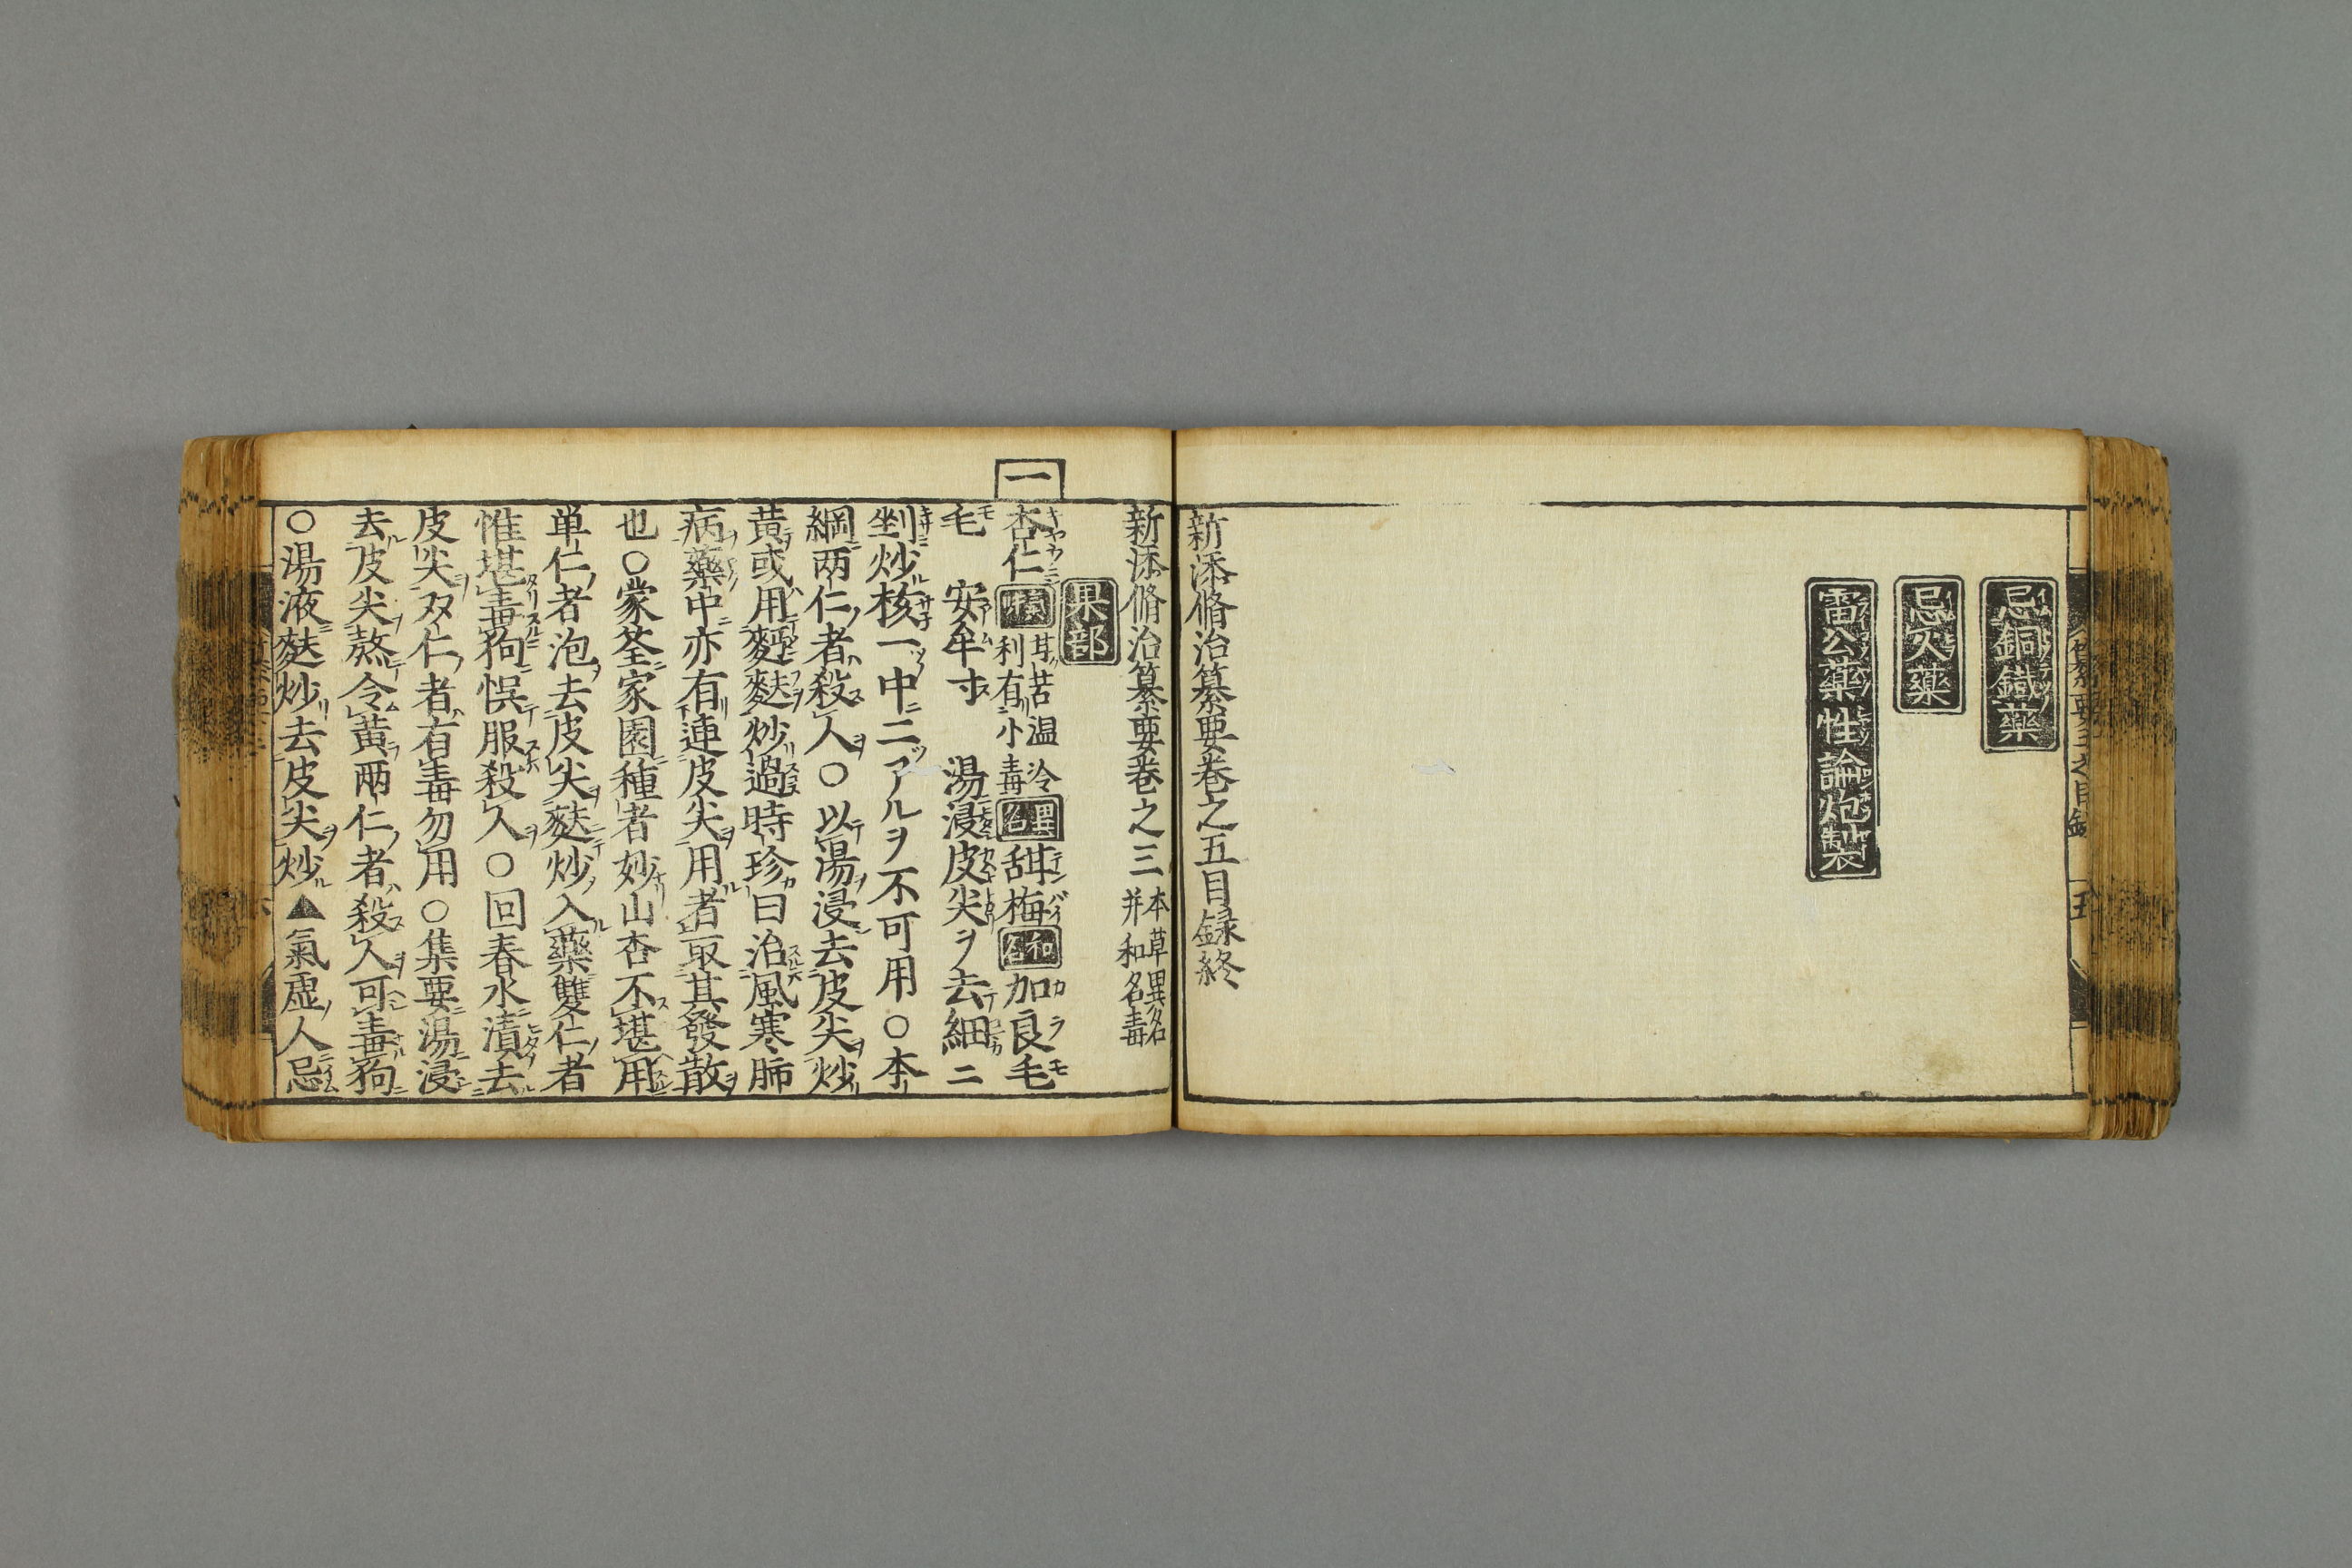 忌銅鐵藥
忌火藥
雷公藥性論炮製
新添脩治纂要卷之五目録終
新添脩治纂要卷之三 本草異名 并和名毒
果部
一
杏仁 甘苦温冷利有小毒 異名 甜梅 和名 加良毛
毛 安牟寸 湯浸皮尖ヲ去細ニ
剉炒核一中二アルヲ不可用○本
綱両仁者殺人○以湯浸去皮尖炒
黄或用麺麩炒過時珍曰治風寒肺
病藥中亦有連皮尖用者取其發散
也○蒙筌家園種者妙山杏不堪用
単仁者泡去皮尖麩炒入藥雙仁者
惟堪毒狗悞服殺人○回春水漬去
皮尖双仁者有毒勿用○集要湯浸
去皮尖熬令黄兩仁者殺人可毒狗
○湯液麩炒去皮尖炒▲氣虚人忌